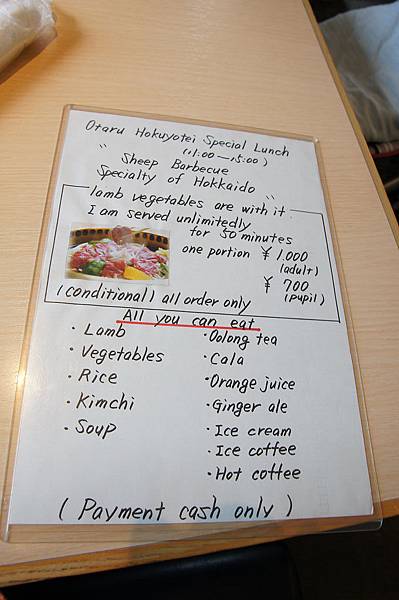 Otaru Hokuyotei Special Lunch
(11:00—15:00)
" Sheep Barbecue
Specialty of Hokkaido "
lamb vegetables are with it.
I am served unlimitedly
for 50 minutes
one portion ¥ 1.000
(adult)
¥ 700
(pupil)
(conditional) all order only
All you can eat
・Lamb
・Vegetables
・Rice
・Kimchi
・Soup
・Oolong tea
・Cala
・Orange juice
・Ginger ale
・Ice cream
・Ice coffee
・Hot coffee
( Payment cash only )